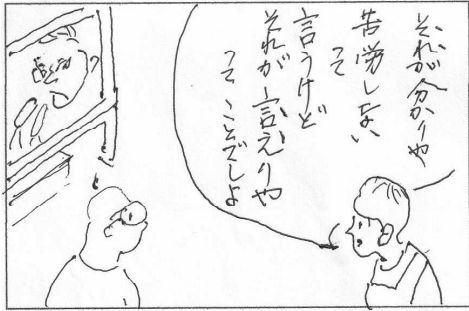 それが分りゃ
苦労しない
って
言うけど
それが言えりゃ
って ことでしょ